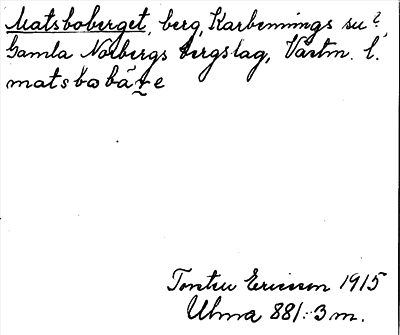 Matsboberget, berg, Karbennings sn?,
Gamla Norbergs bergslag, Västm. l.
matsbobärɛ
Torsten Ericsson 1915
Uhma 881:3 m.